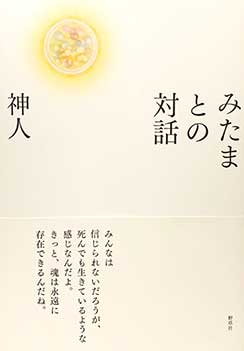 みたま
との
対話
神人
みんなは
信じられないだろうが、
死んでも生きているような
感じなんだよ。
きっと、魂は永遠に
存在できるんだね。
野草社